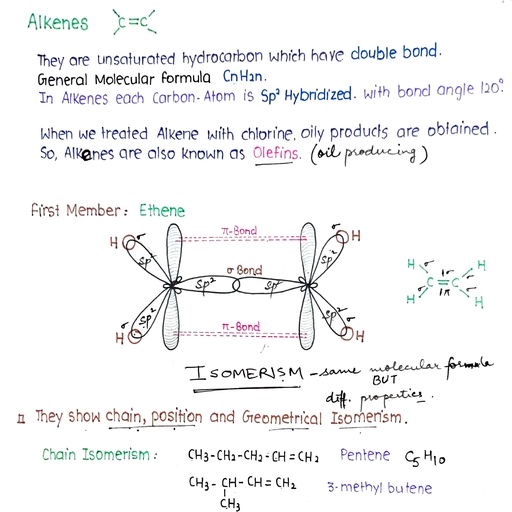 Alkenes >C=C<
They are unsaturated hydrocarbon which have double bond.
General Molecular formula CnH2n.
In Alkenes each Carbon-Atom is Sp² Hybridized. with bond angle 120°.
When we treated Alkene with chlorine, oily products are obtained.
So, Alkenes are also known as Olefins. (oil producing)
First Member: Ethene
π-Bond
H σ σ H
Sp² Sp²
σ Bond
Sp² Sp²
H σ σ H
C 1σ = 1π C
H σ σ H
Sp² Sp²
π-Bond
H σ σ H
ISOMERISM - same molecular formula
BUT
diff. properties.
II They show chain, position and Geometrical Isomerism.
Chain Isomerism: CH3-CH2-CH2-CH=CH2 Pentene C5H10
CH3-CH-CH=CH2 3-methyl butene
CH3